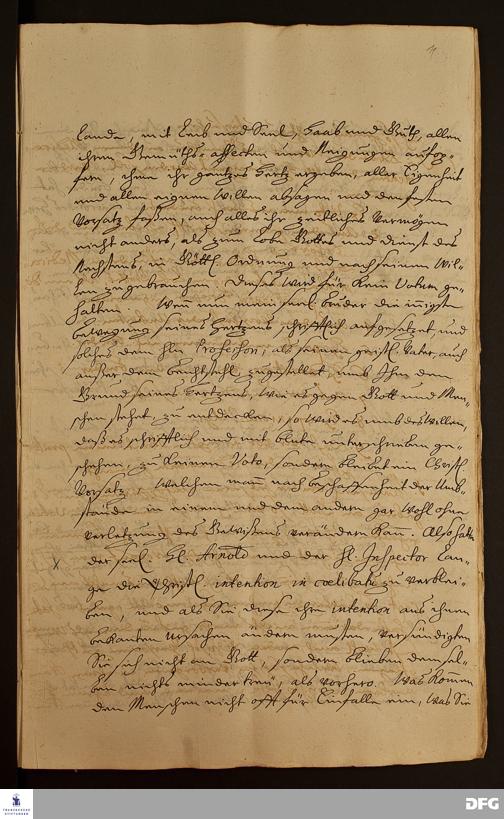 Lande, mit Leib und Seel, Haab und Guth, allen
ihren Gemüths-affecten und Neigungen aufop-
fern, ihme ihr gantzes Hertz ergeben, aller Eigenheit
und allen eignen Willen absagen und den festen
Vorsatz faßen, auch alles ihr zeitliches Vermögen
nicht anders, als zum Lobe Gottes und dienst des
Nechstens, in Göttl. Ordnung und nach seinem Wil-
len zu gebrauchen. Dieses wird für kein Votum ge-
halten. Wenn nun mein seel. bruder die innigste
bewegung seines Hertzens schrifftlich aufgesetzet, und
solches dem Hln Professori, als seinem geistl. Vater, auch
außer dem beichtstuhl zugestellet, umb Ihm den
Grund seines Hertzens, wie es gegen Gott und Men-
schen stehet, zu entdecken, so wird es umb deswillen,
daß es schrifftlich und mit blute unterschrieben ge-
schehen, zu keinem Voto, sondern bleibet ein Christl.
Vorsatz, welchen man nach beschaffenheit der Umb-
stände in einem und dem andern gar wohl ohne
verletzung des Gewißens verändern kan. Also hatte
der seel. H. Arnold und der H. Inspector Lan-
ge die Christl. intention in coelibatu zu verblei-
ben, und als Sie diese ihre intention aus ihnen
bekanten Ursachen ändern musten, versündigten
Sie sich nicht an Gott, sondern blieben demsel-
ben nichts minder treu, als vorhero. Was kommen
dem Menschen nicht offt für Einfälle ein, was Sie
FRANCKESCHE STIFTUNGEN
DFG